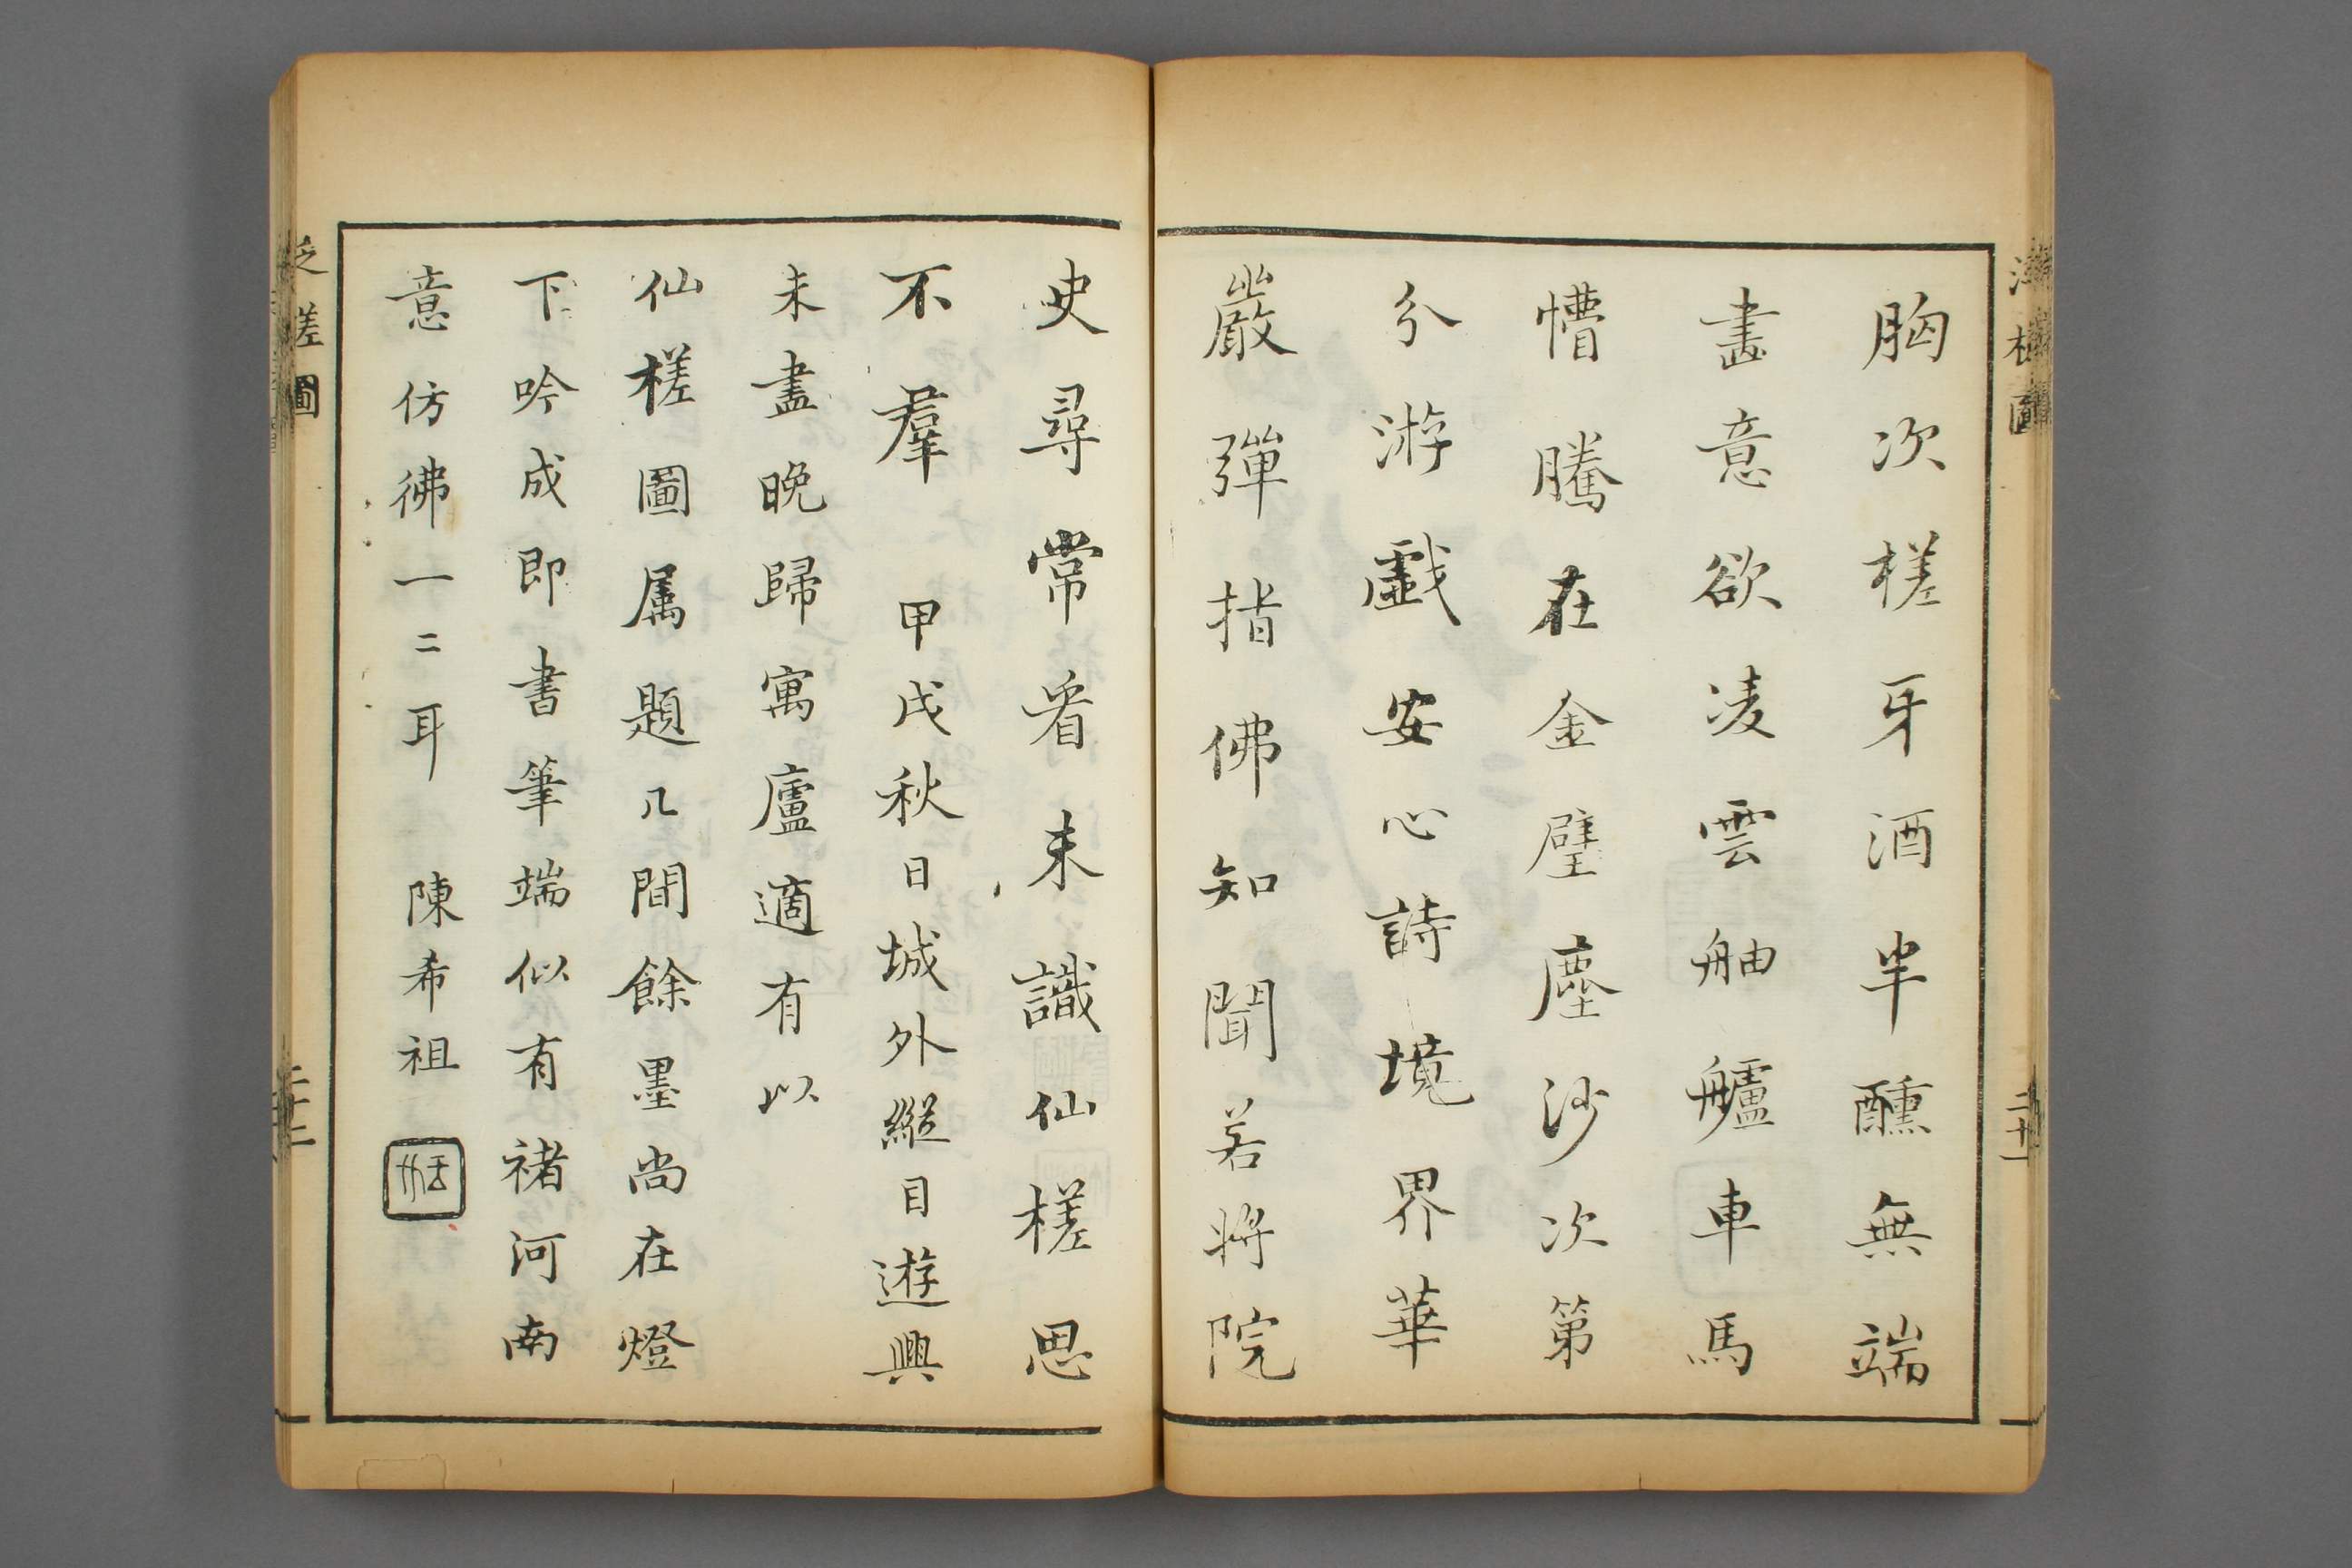 胸次槎牙酒半醺無端
畫意欲凌雲舳艫車馬
慒騰在金壁塵沙次第
分游戲安心詩境界華
嚴彈指佛知聞若將院
史尋常看未識仙槎思
不羣　甲戌秋日城外縱目遊興
未盡晚歸寓廬適有以
仙槎圖属題几間餘墨尚在燈
下吟成即書筆端似有褚河南
意仿彿一二耳　陳希祖
泛槎圖
二十一
泛槎圖
二十二